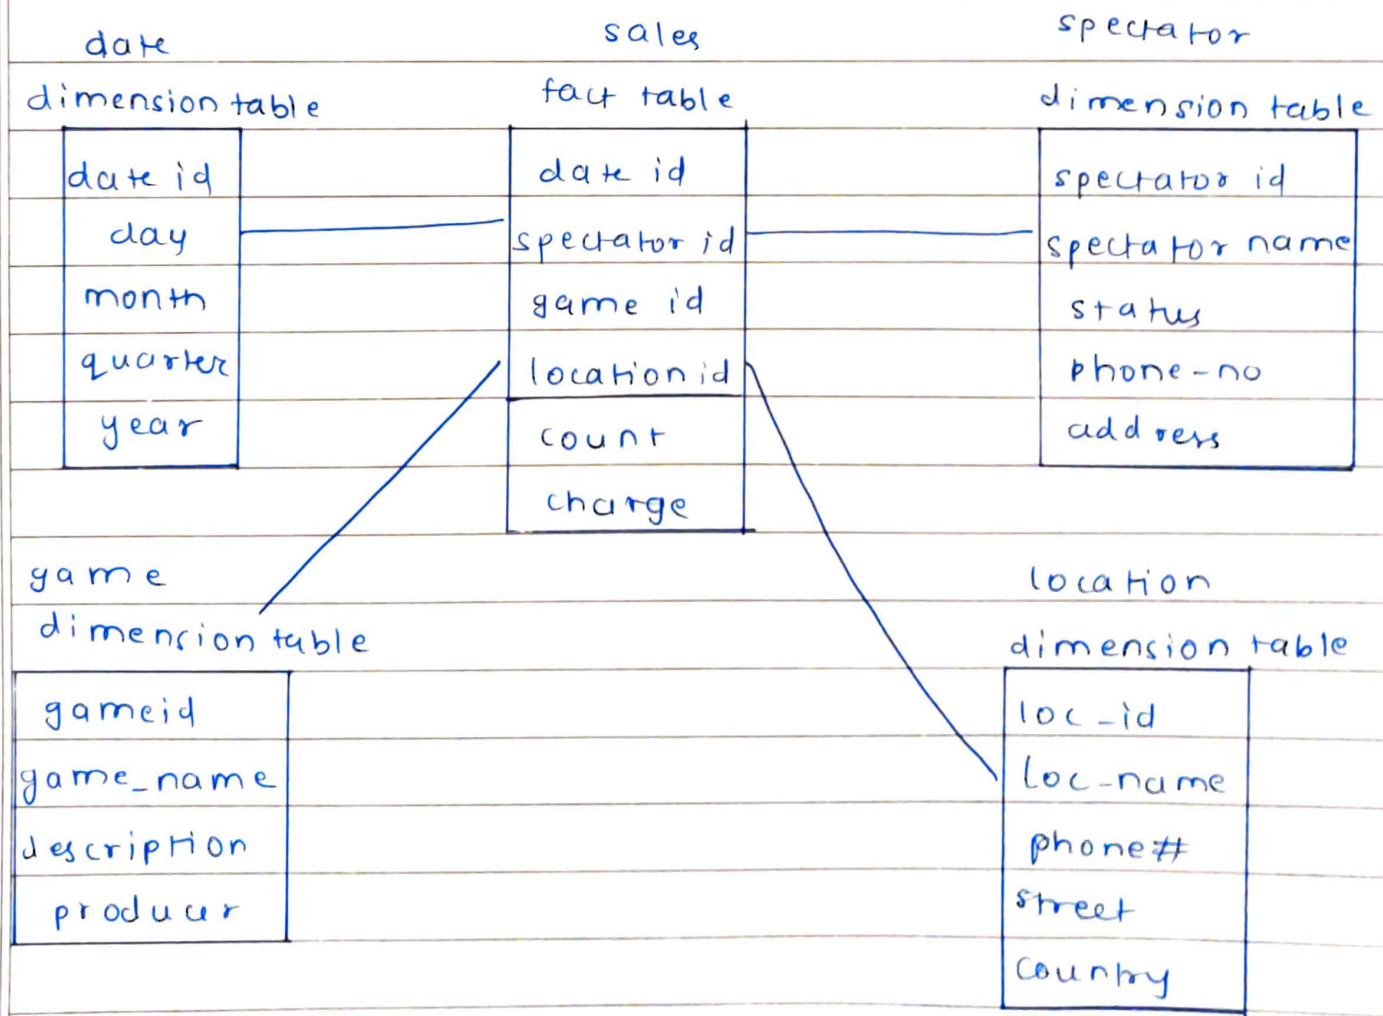 date
dimension table
date id
day
month
quarter
year
sales
fact table
date id
spectator id
game id
location id
count
charge
spectator
dimension table
spectator id
spectator name
status
phone-no
address
game
dimension table
gameid
game_name
description
producer
location
dimension table
loc_id
loc-name
phone#
street
country